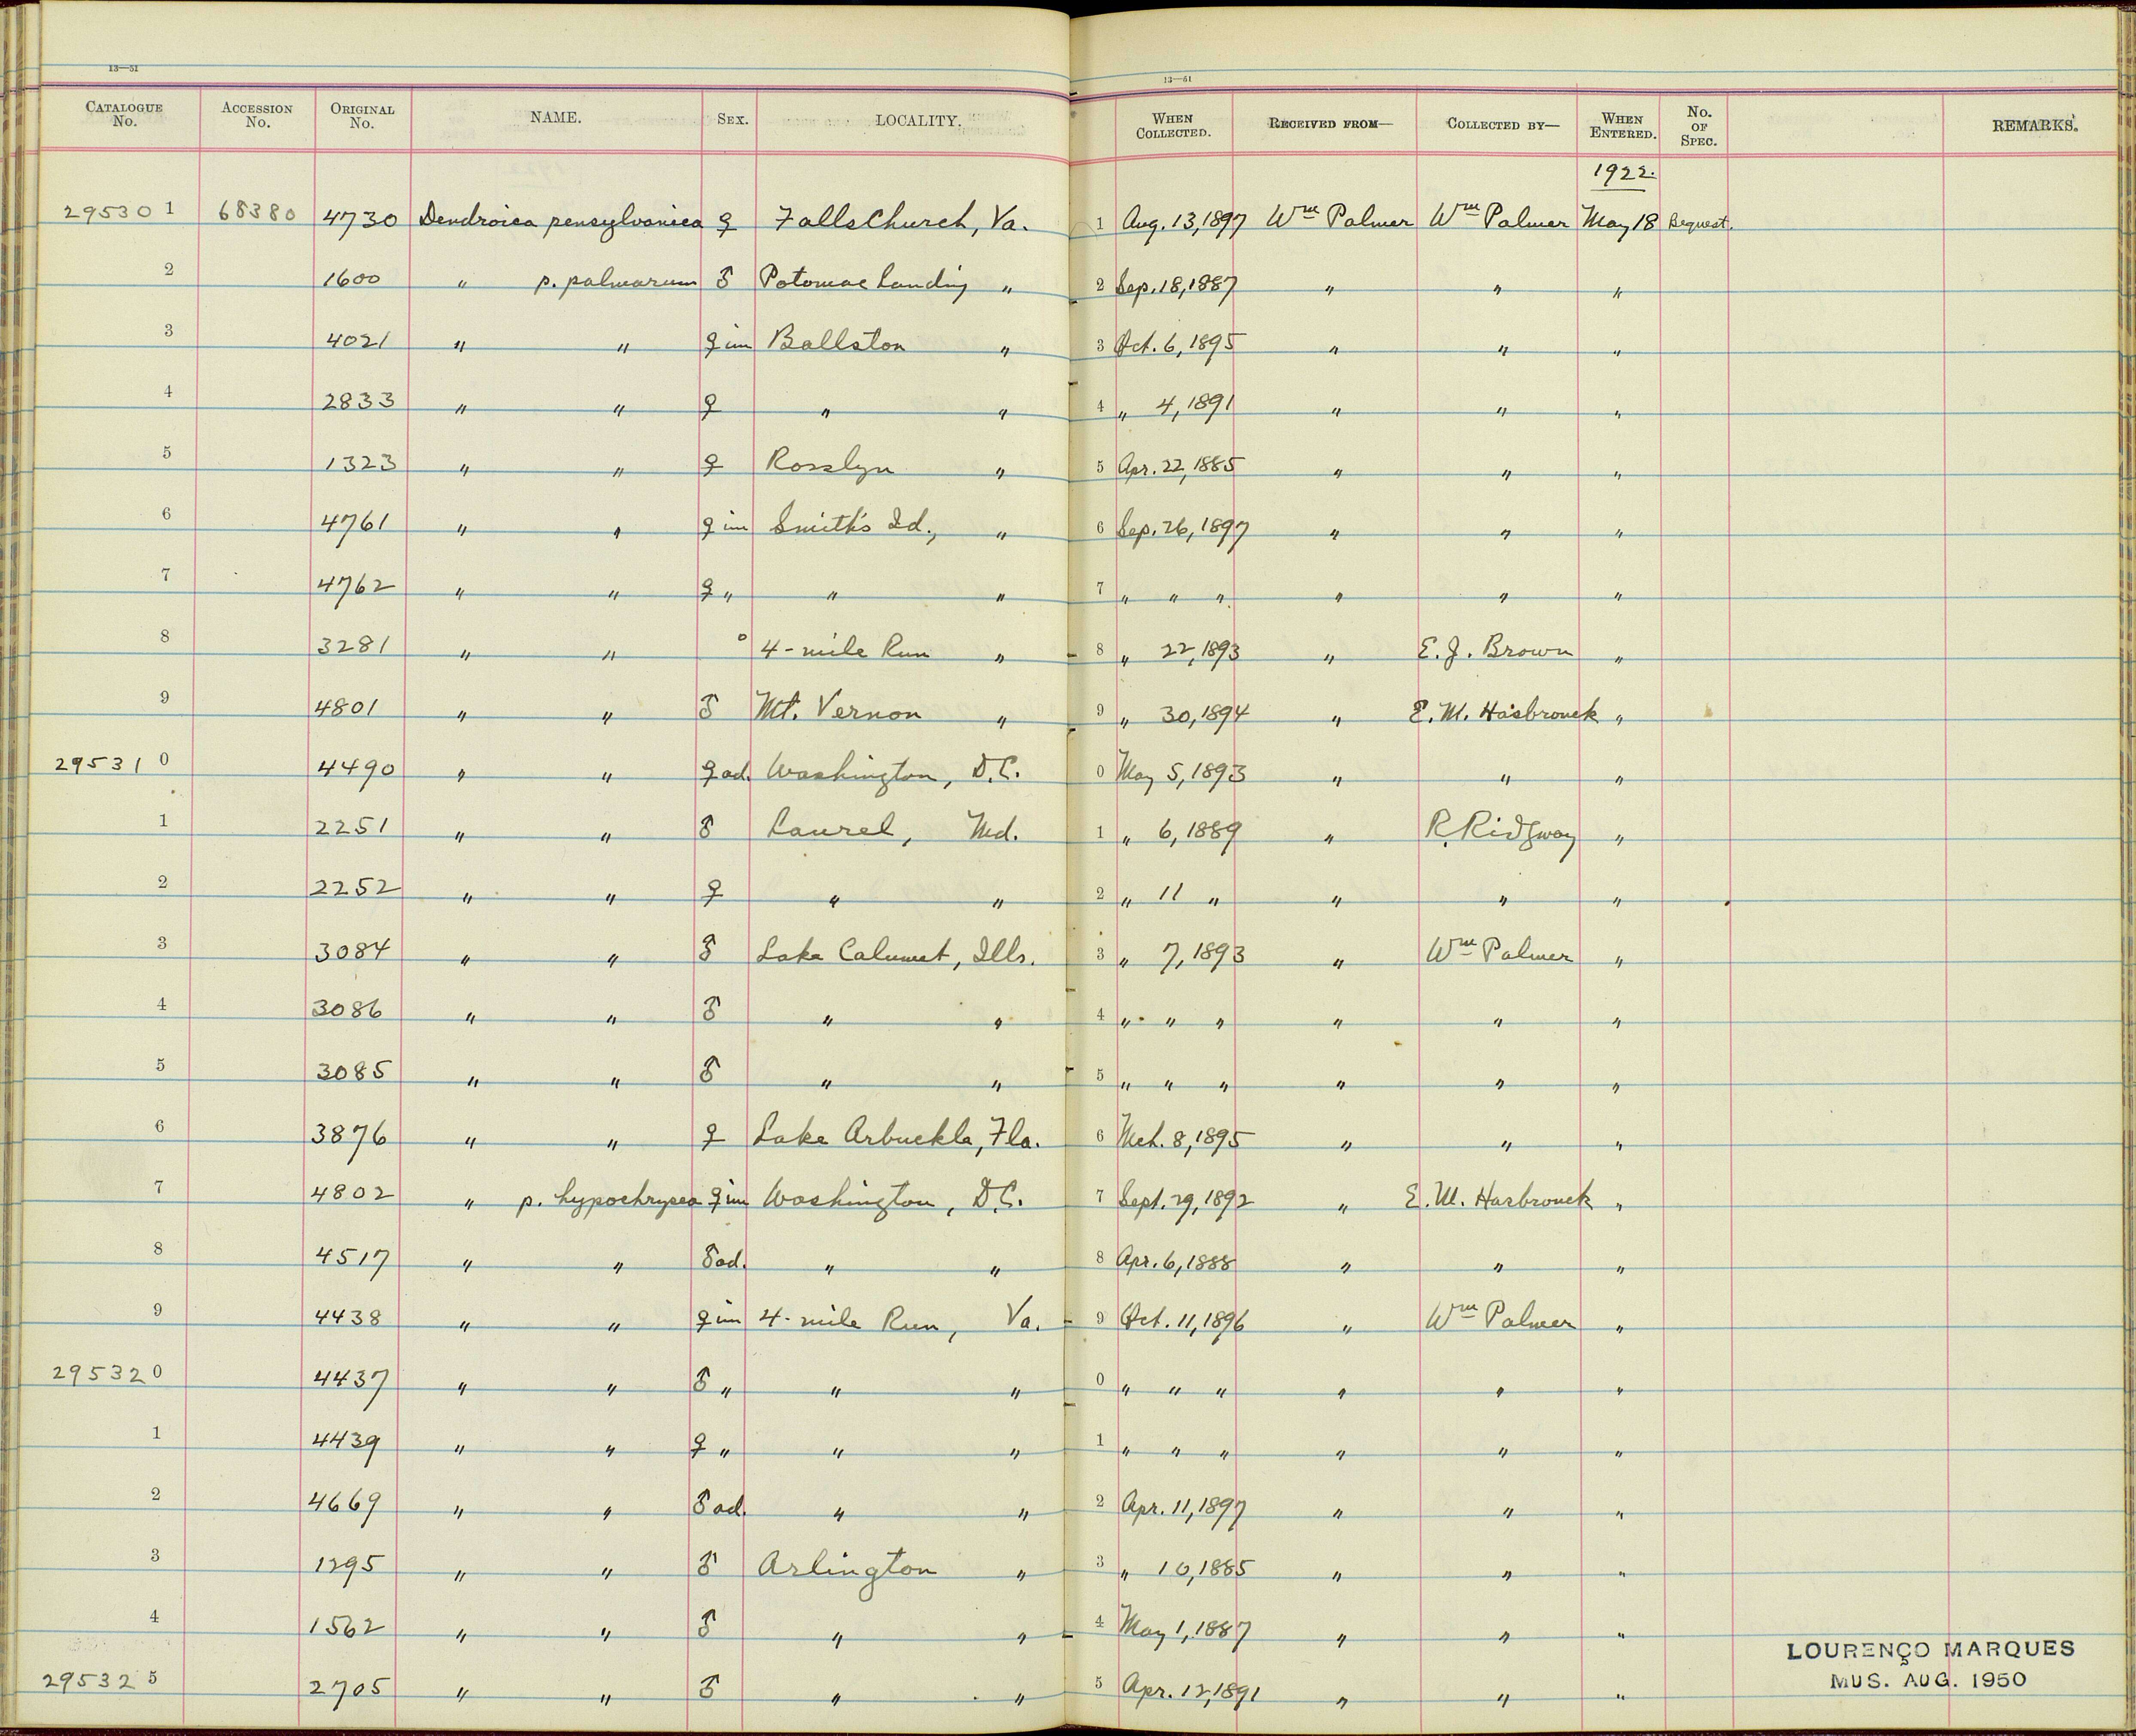 13—51 13—51
CATALOGUE No. ACCESSION No. ORIGINAL No. NAME. SEX. LOCALITY. WHEN COLLECTED. RECEIVED FROM— COLLECTED BY— WHEN ENTERED. No. OF SPEC. REMARKS.
1922.
29530 1 68380 4730 Dendroica pensylvanica ♀ Falls Church, Va. 1 Aug. 13, 1897 Wm Palmer Wm Palmer May 18 Bequest.
2 1600 " p. palmarum ♂ Potomac Landing " 2 Sep. 18, 1887 " " "
3 4021 " " ♀ im Ballston " 3 Oct. 6, 1895 " " "
4 2833 " " ♀ " " 4 " 4, 1891 " " "
5 1323 " " ♀ Rosslyn " 5 Apr. 22, 1885 " " "
6 4761 " " ♀ im Smith's Id., " 6 Sep. 26, 1897 " " "
7 4762 " " ♀ " " " 7 " " " " " "
8 3281 " " ° 4-mile Run " 8 " 22, 1893 " E. J. Brown "
9 4801 " " ♂ Mt. Vernon " 9 " 30, 1894 " E. M. Hasbrouck "
29531 0 4490 " " ♀ ad. Washington, D.C. 0 May 5, 1893 " " "
1 2251 " " ♂ Laurel, Md. 1 " 6, 1889 " R. Ridgway "
2 2252 " " ♀ " " 2 " 11 " " " "
3 3084 " " ♂ Lake Calumet, Ills. 3 " 7, 1893 " Wm Palmer "
4 3086 " " ♂ " " 4 " " " " " "
5 3085 " " ♂ " " 5 " " " " " "
6 3876 " " ♀ Lake Arbuckle, Fla. 6 Mch. 8, 1895 " " "
7 4802 " p. hypochrysea ♀ im Washington, D.C. 7 Sept. 29, 1892 " E. M. Hasbrouck "
8 4517 " " ♂ ad. " " 8 Apr. 6, 1888 " " "
9 4438 " " ♀ im 4-mile Run, Va. 9 Oct. 11, 1896 " Wm Palmer "
29532 0 4437 " " ♂ " " " 0 " " " " " "
1 4439 " " ♀ " " " 1 " " " " " "
2 4669 " " ♂ ad. " " 2 Apr. 11, 1897 " " "
3 1295 " " ♂ Arlington " 3 " 10, 1885 " " "
4 1562 " " ♂ " " 4 May 1, 1887 " " "
29532 5 2705 " " ♂ " " 5 Apr. 12, 1891 " " "
LOURENÇO MARQUES
MUS. AUG. 1950